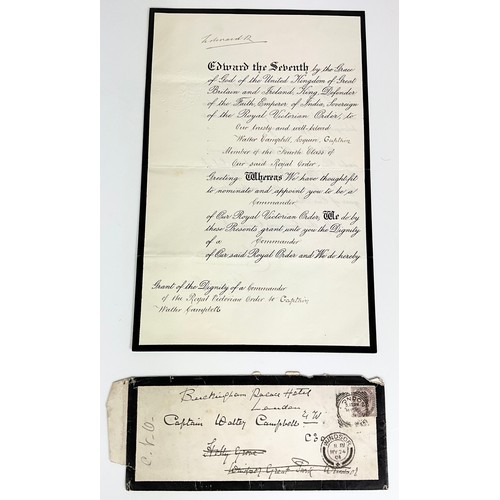 Edward R
Edward the Seventh by the Grace
of God, of the United Kingdom of Great
Britain and Ireland, King, Defender
of the Faith, Emperor of India, Sovereign
of the Royal Victorian Order, to
Our trusty and well-beloved
Walter Campbell, Esquire, Captain
Member of the Fourth Class of
Our said Royal Order.
Greeting. Whereas We have thought fit
to nominate and appoint you to be a
Commander
of Our Royal Victorian Order, We do by
these Presents grant unto you the Dignity
of a Commander
of Our said Royal Order and We do hereby
Grant of the Dignity of a Commander
of the Royal Victorian Order to Captain
Walter Campbell
Buckingham Palace Hotel
London
Captain Walter Campbell
Holly Grove
Windsor Great Park Windsor
WINDSOR
MY 24